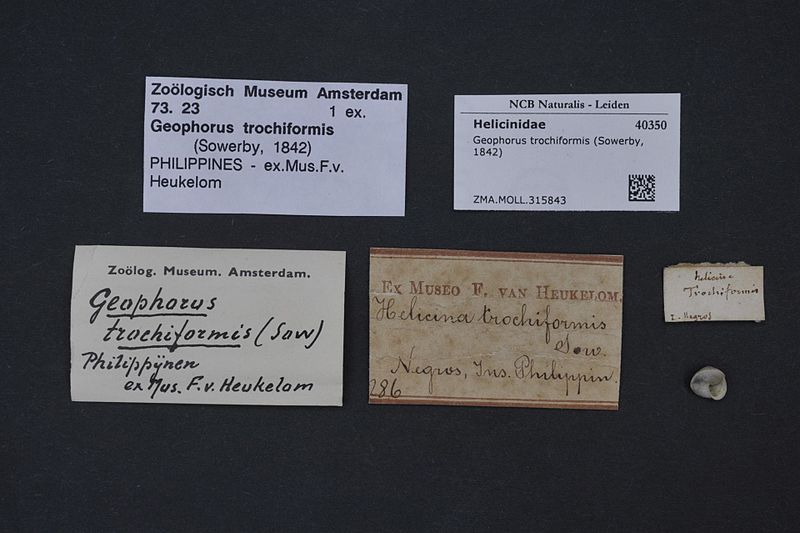 Zoölogisch Museum Amsterdam
73. 23 1 ex.
Geophorus trochiformis
(Sowerby, 1842)
PHILIPPINES - ex.Mus.F.v.
Heukelom
NCB Naturalis - Leiden
Helicinidae 40350
Geophorus trochiformis (Sowerby,
1842)
ZMA.MOLL.315843
Zoölog. Museum. Amsterdam.
Geophorus
trochiformis (Sow)
Philippijnen
ex Mus. F. v. Heukelom
Ex Museo F. van Heukelom.
Helicina trochiformis
Sow.
Negros, Ins. Philippin.
286
Trochiformis
I. Negros